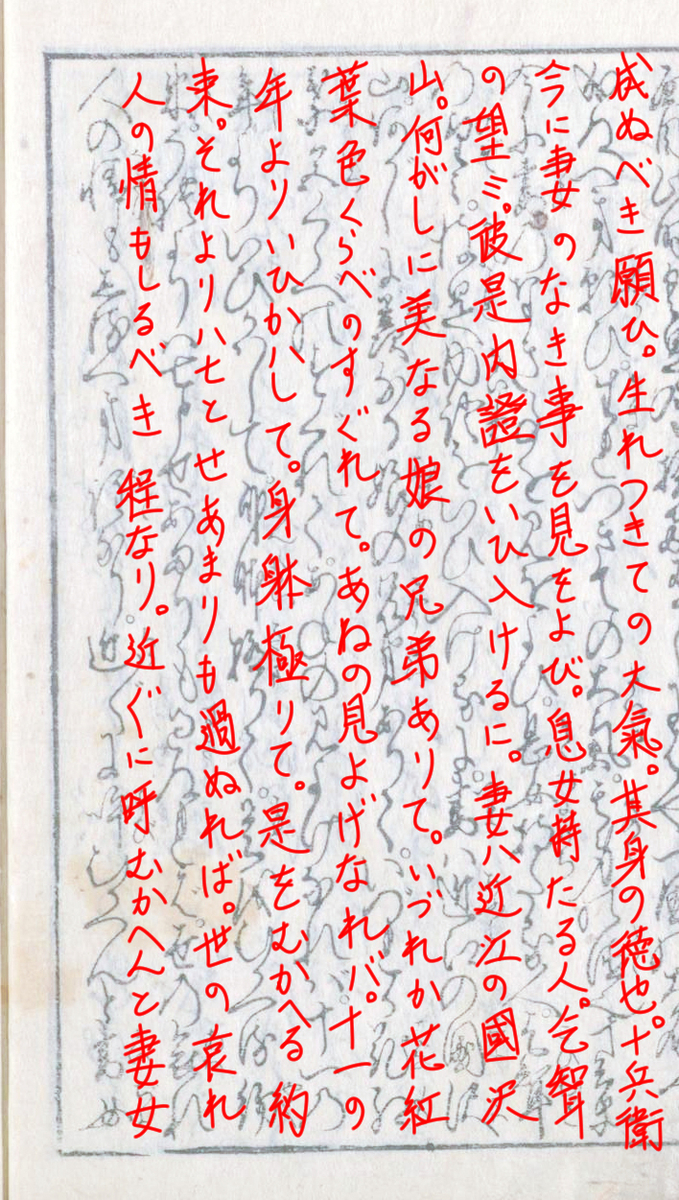 成ぬべき願ひ。生れつきての大氣。其身の徳也。十兵衛
今に妻のなき事を見をよび。息女持たる人。乞聟
の望ミ。彼是内證をいひ入けるに。妻ハ近江の國沢
山。何がしに美なる娘の兄弟ありて。いづれか花紅
葉色くらべのすぐれて。あねの見よげなれバ。十一の
年よりいひかハして。身躰極りて。是をむかへる約
束。それよりハ七とせあまりも過ぬれば。世の哀れ
人の情もしるべき程なり。近ぐに呼むかへんと妻女